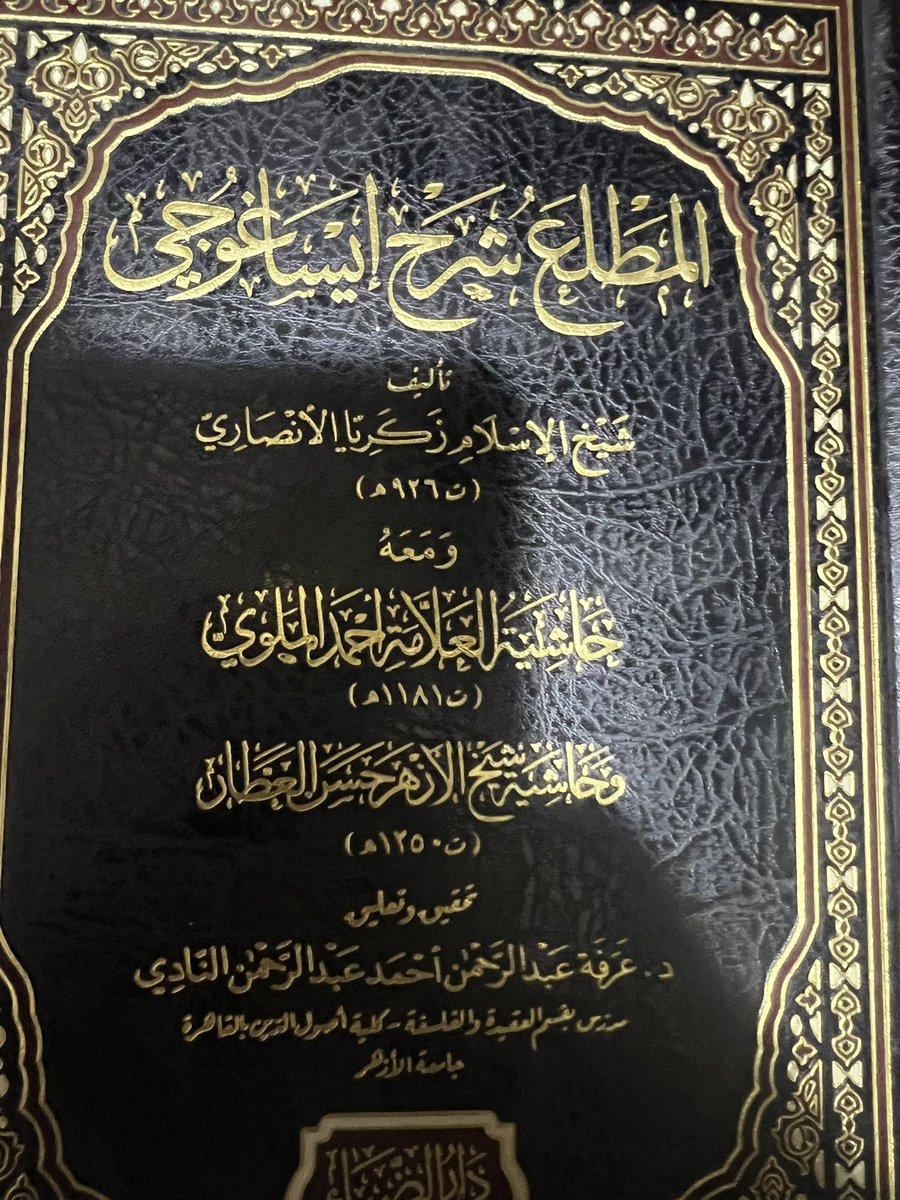 المَطْلَعُ شَرْحُ إيسَاغُوجِي
تأليف
شَيْخِ الإسْلَامِ زَكَرِيَّا الأَنْصَارِيّ
(ت٩٢٦هـ)
وَمَعَهُ
حَاشِيَةُ العَلَّامَةِ أحْمَدَ المَلَّوِيِّ
(ت١١٨١هـ)
وَحَاشِيَةُ شَيْخِ الأزْهَرِ حَسَنِ العَطَّارِ
(ت١٢٥٠هـ)
تحقيق وتعليق
د. عَرَفَة عَبْد الرَّحْمٰن أحْمَد عَبْد الرَّحْمٰن النَّادِي
مدرس بقسم العقيدة والفلسفة - كلية أصول الدين بالقاهرة
جامعة الأزهر
دَارُ الضِّيَاءِ